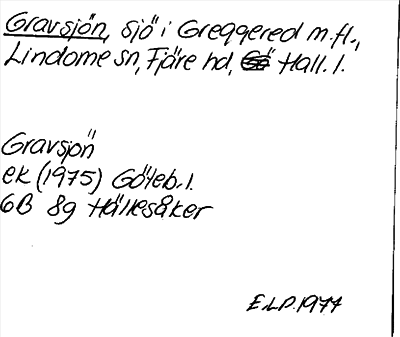 Gravsjön, sjö i Greggered m.fl.,
Lindome sn, Fjäre hd, Hall. l.
Gravsjön
ek (1975) Göteb. l.
6B 8g Hällesåker
E.L.P. 1977